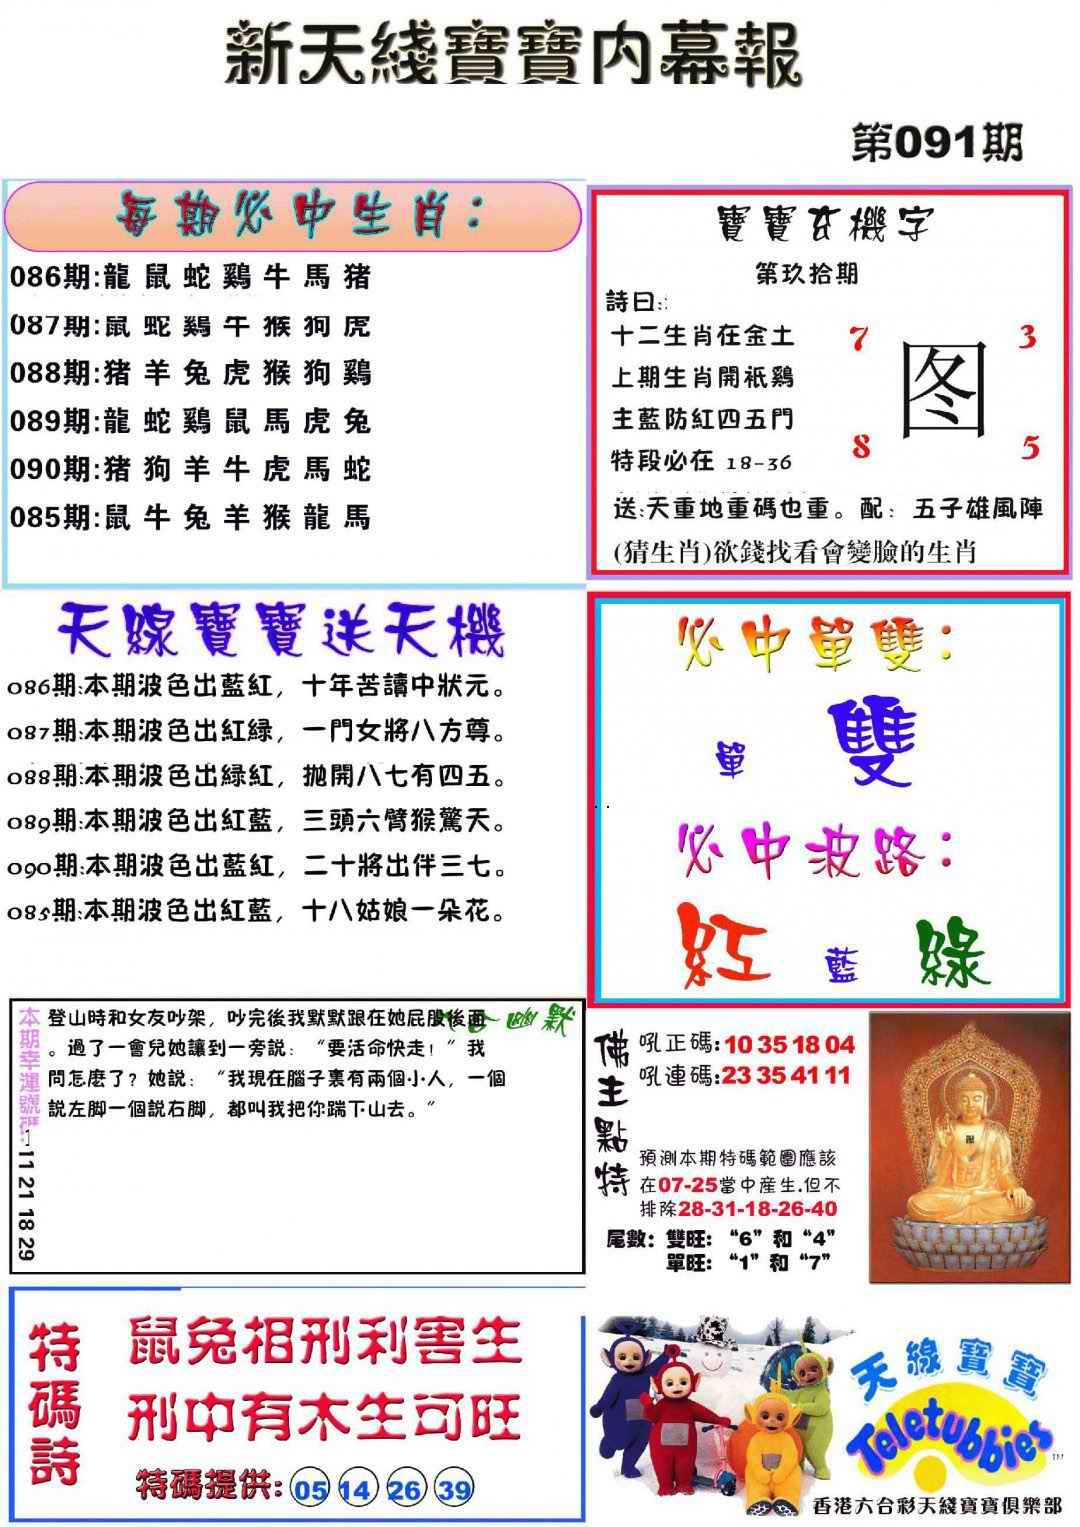 新天綫寶寶内幕報
第091期
每期必中生肖：
086期:龍鼠蛇鷄牛馬猪
087期:鼠蛇鷄牛猴狗虎
088期:猪羊兔虎猴狗鷄
089期:龍蛇鷄鼠馬虎兔
090期:猪狗羊牛虎馬蛇
085期:鼠牛兔羊猴龍馬
寶寶玄機字
第玖拾期
詩曰:
十二生肖在金土
上期生肖開祇鷄
主藍防紅四五門
特段必在 18-36
7 3
图
8 5
送:天重地重碼也重。配：五子雄風陣
(猜生肖)欲錢找看會變臉的生肖
天線寶寶送天機
086期:本期波色出藍紅，十年苦讀中狀元。
087期:本期波色出紅緑，一門女將八方尊。
088期:本期波色出緑紅，抛開八七有四五。
089期:本期波色出紅藍，三頭六臂猴驚天。
090期:本期波色出藍紅，二十將出伴三七。
085期:本期波色出紅藍，十八姑娘一朵花。
必中單雙：
單 雙
必中波路：
紅 藍 綠
幽默
登山時和女友吵架，吵完後我默默跟在她屁股後面
。過了一會兒她讓到一旁説：“要活命快走！”我
問怎麽了？她説：“我現在腦子裏有兩個小人，一個
説左脚一個説右脚，都叫我把你踹下山去。”
本期幸運號碼:
11 21 18 29
佛主點特
吼正碼:10 35 18 04
吼連碼:23 35 41 11
預測本期特碼範圍應該
在07-25當中産生.但不
排除28-31-18-26-40
尾數：雙旺：“6”和“4”
單旺：“1”和“7”
特碼詩
鼠兔相刑利害生
刑中有木生可旺
特碼提供: 05 14 26 39
天線寶寶
Teletubbies
TM
香港六合彩天綫寶寶俱樂部